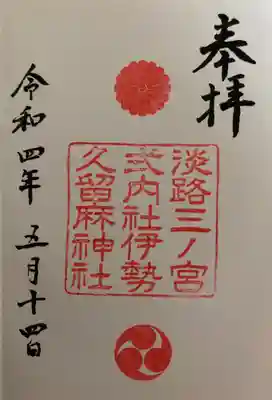 奉拝
淡路三ノ宮
式内社伊勢
久留麻神社
令和四年 五月十四日